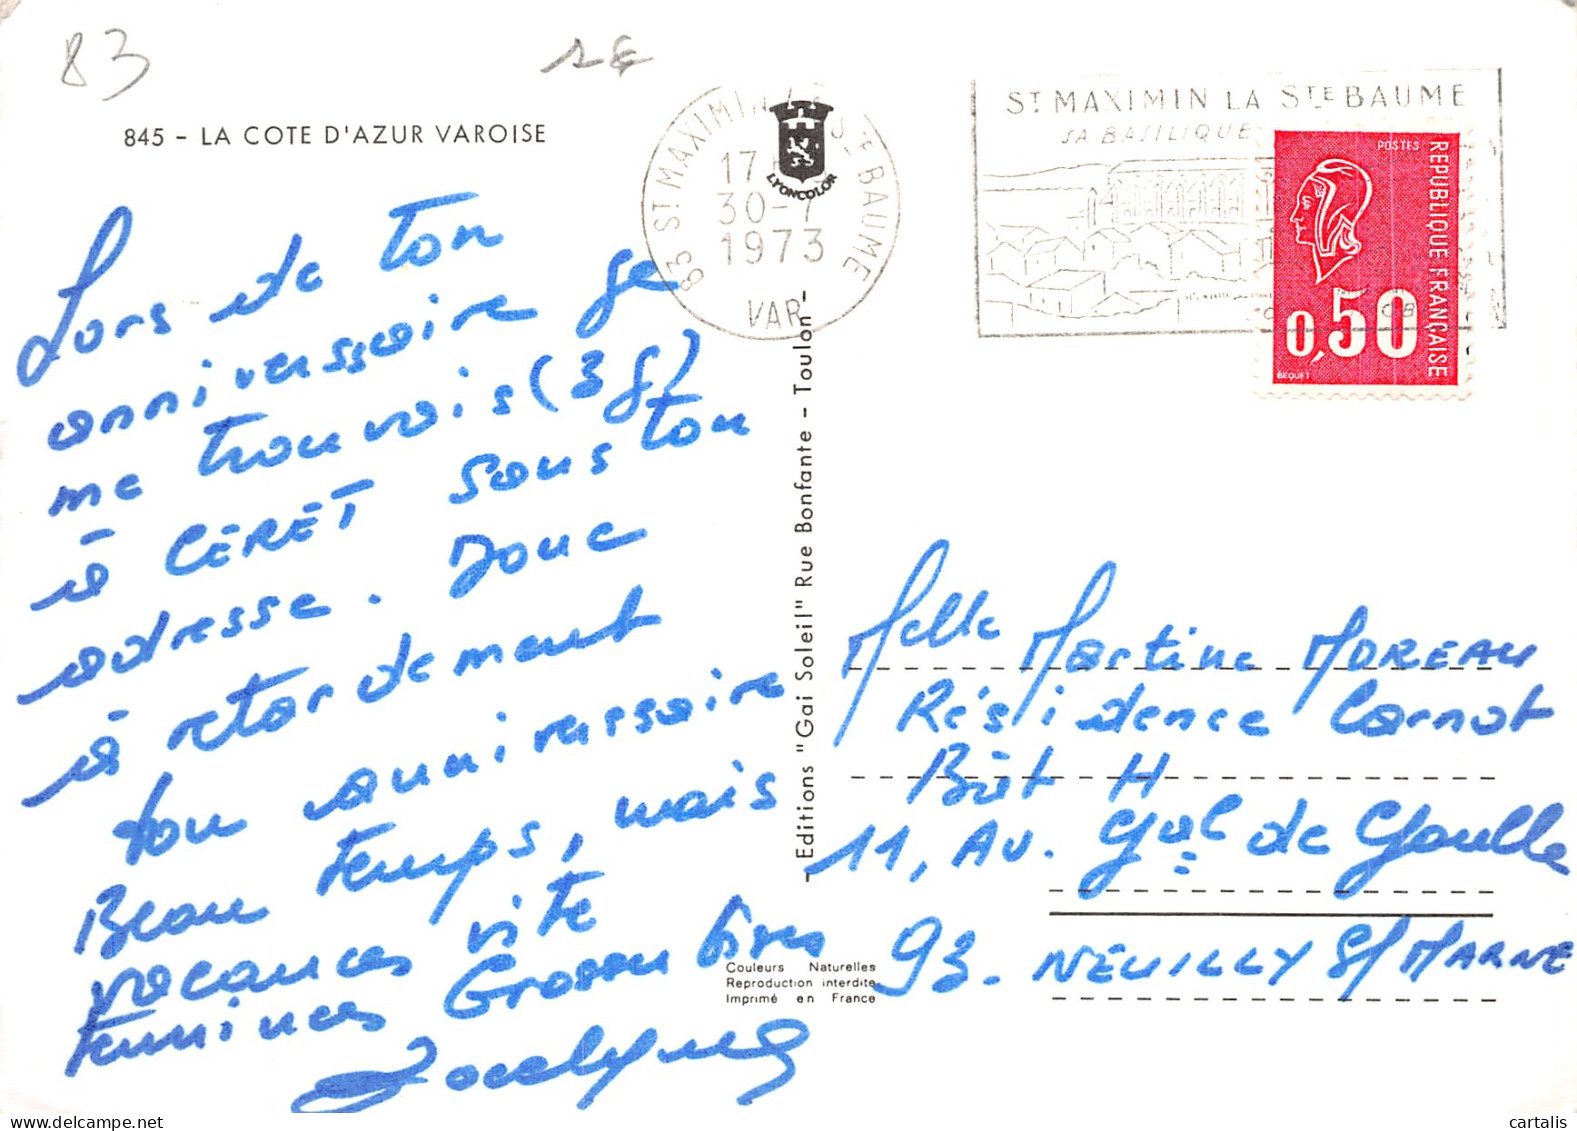 83
1€
845 - LA COTE D'AZUR VAROISE
83 ST MAXIMIN LA STE BAUME
17
30-7
1973
VAR
LYONCOLOR
ST MAXIMIN LA STE BAUME
SA BASILIQUE
POSTES
REPUBLIQUE FRANÇAISE
0,50
BEQUET
Lors de ton
anniverssaire je
me trouvais (3 J)
à CERET sous ton
adresse. Donc
à retardement
bon annirverssaire
Beau temps, mais
vacances vite
terminées Grosses bises
Jocelyne
Editions "Gai Soleil" Rue Bonfante - Toulon
Couleurs Naturelles
Reproduction interdite
Imprimé en France
Melle Martine MOREAU
Résidence Carnot
Bât H
11, Av. Gal de Gaulle
93. NEUILLY S/ MARNE
cartalis